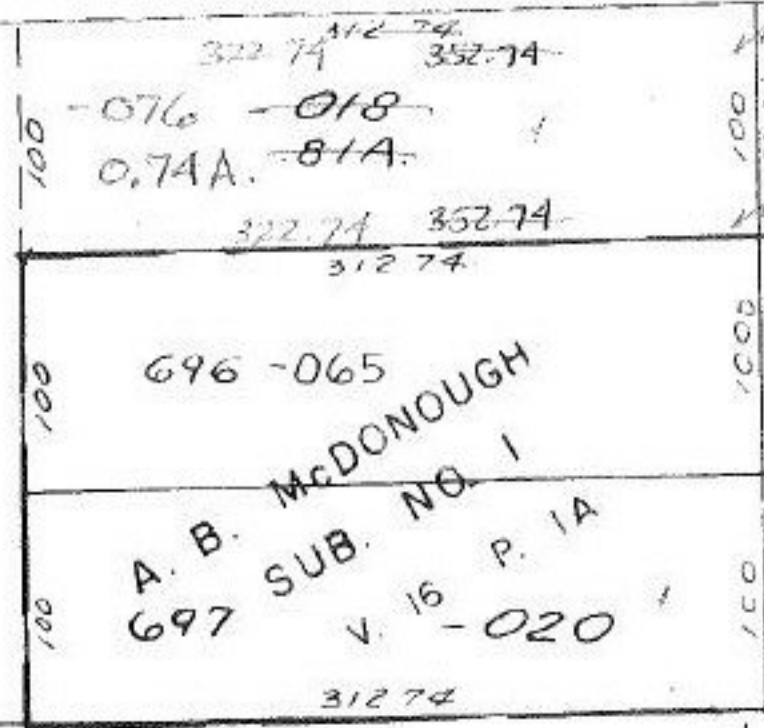 312.74
322.74 352.74
100 -076 -018 100
0.74A. .81A.
322.74 352.74
312 74
100 696 -065 100
A. B. McDONOUGH
SUB. NO. 1
V. 16 P. 1A
100 697 -020 100
312 74